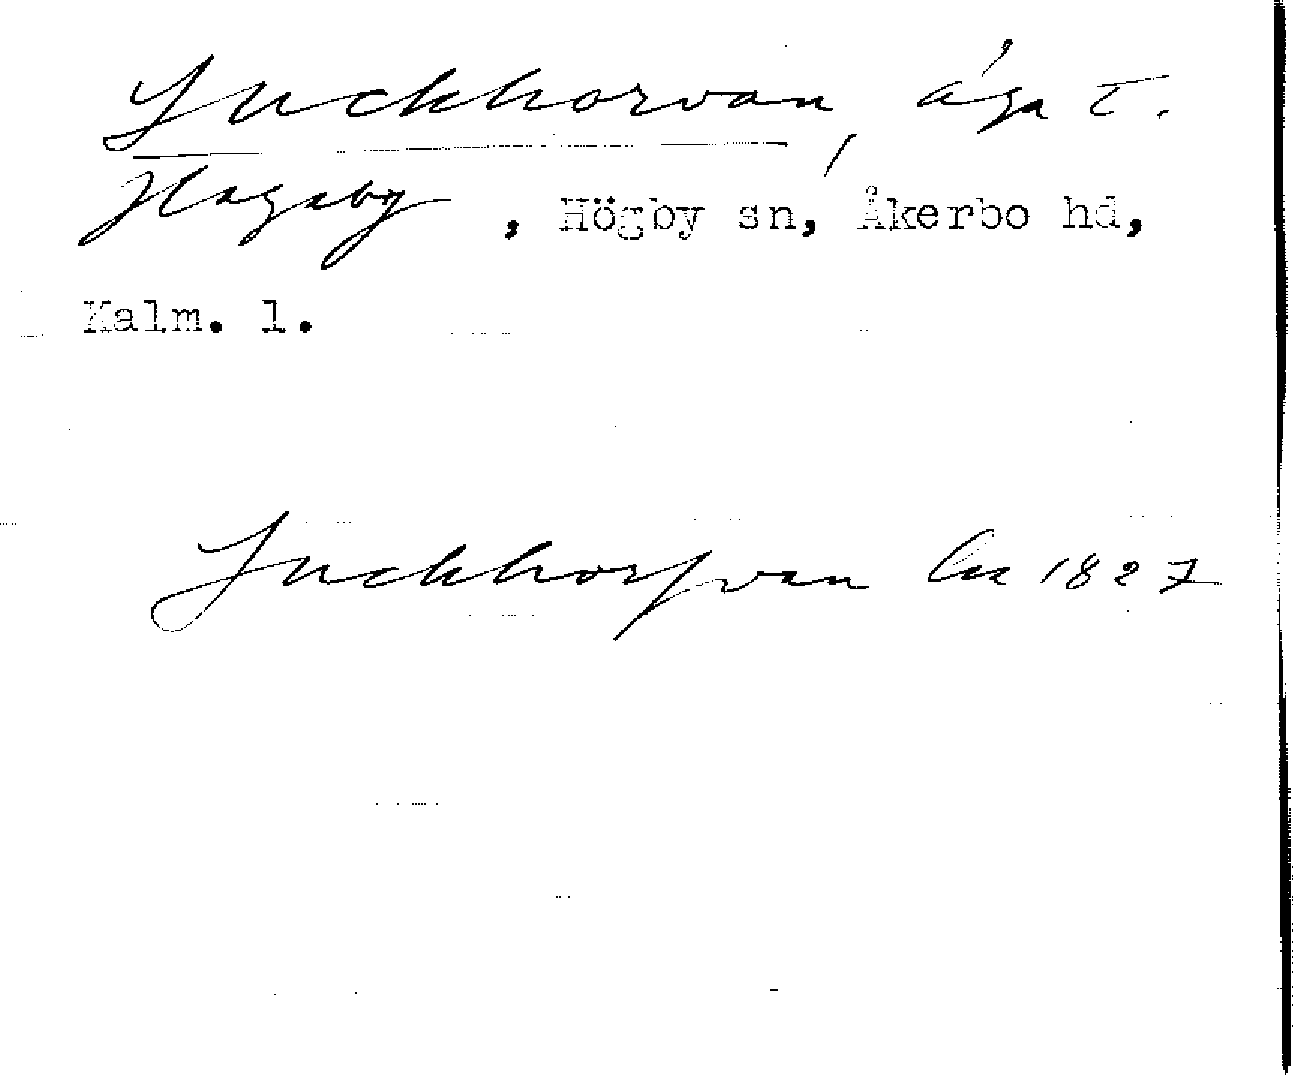 Suckhorvan, äga t.
Hagaby, Högby sn, Åkerbo hd,
Kalm. l.
Suckhorfvan Lm 1827